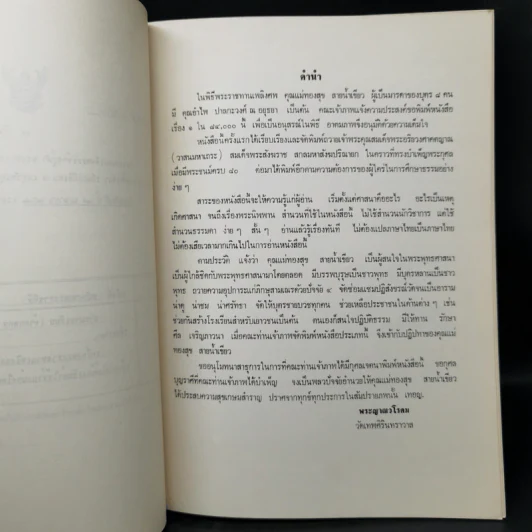 คำนำ
ในพิธีพระราชทานเพลิงศพ คุณแม่ทองสุข สายน้ำเขียว ผู้เป็นมารดาของบุตร ๘ คน
มี คุณอำไพ ปาลกะวงศ์ ณ อยุธยา เป็นต้น คณะเจ้าภาพแจ้งความประสงค์ขอพิมพ์หนังสือ
เรื่อง ๑ ใน ๘๔,๐๐๐ นี้ เพื่อเป็นอนุสรณ์ในพิธี อาตมภาพจึงอนุมัติด้วยความเต็มใจ
หนังสือนี้ครั้งแรกได้เรียบเรียงและจัดพิมพ์ถวายเจ้าพระคุณสมเด็จพระอริยวงศาคตญาณ
(วาสนมหาเถระ) สมเด็จพระสังฆราช สกลมหาสังฆปริณายก ในคราวที่ทรงบำเพ็ญพระกุศล
เมื่อมีพระชนม์ครบ ๘๐ ต่อมาได้พิมพ์อีกตามความต้องการของผู้ใคร่ในการศึกษาธรรมอย่าง
ง่าย ๆ
สาระของหนังสือนี้จะให้ความรู้แก่ผู้อ่าน เริ่มตั้งแต่ศาสนาคืออะไร อะไรเป็นเหตุ
เกิดศาสนา จนถึงเรื่องพระนิพพาน สำนวนที่ใช้ในหนังสือนี้ ไม่ใช้สำนวนนักวิชาการ แต่ใช้
สำนวนธรรมดา ง่าย ๆ สั้น ๆ อ่านแล้วรู้เรื่องทันที ไม่ต้องแปลภาษาไทยเป็นภาษาไทย
ไม่ต้องเสียเวลามากเกินไปในการอ่านหนังสือนี้
ตามประวัติ แจ้งว่า คุณแม่ทองสุข สายน้ำเขียว เป็นผู้สนใจในพระพุทธศาสนา
เป็นผู้ใกล้ชิดกับพระพุทธศาสนามาโดยตลอด มีบรรพบุรุษเป็นชาวพุทธ มีบุตรหลานเป็นชาว
พุทธ ถวายความอุปการะแก่ภิกษุสามเณรด้วยปัจจัย ๔ จัดซ่อมแซมปฏิสังขรณ์วัดจนเป็นอาราม
น่าดู น่าชม น่าศรัทธา จัดให้บุตรชายบวชทุกคน ช่วยเหลือประชาชนในด้านต่าง ๆ เช่น
ช่วยกันสร้างโรงเรียนสำหรับเยาวชนเป็นต้น ตนเองก็สนใจปฏิบัติธรรม มีให้ทาน รักษา
ศีล เจริญภาวนา เมื่อคณะท่านเจ้าภาพจัดพิมพ์หนังสือประเภทนี้ จึงเข้ากับปฏิปทาของคุณแม่
ทองสุข สายน้ำเขียว
ขออนุโมทนาสาธุการในการที่คณะท่านเจ้าภาพได้มีกุศลเจตนาพิมพ์หนังสือนี้ ขอกุศล
บุญราศีที่คณะท่านเจ้าภาพได้บำเพ็ญ จงเป็นพลวปัจจัยอำนวยให้คุณแม่ทองสุข สายน้ำเขียว
ได้ประสบความสุขเกษมสำราญ ปราศจากทุกข์ทุกประการในสัมปรายภพนั้น เทอญ.
พระญาณวโรดม
วัดเทพศิรินทราวาส